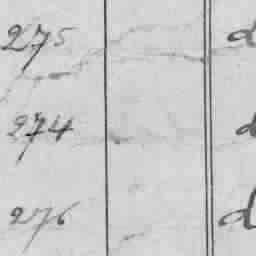 275 d
274 d
276 d